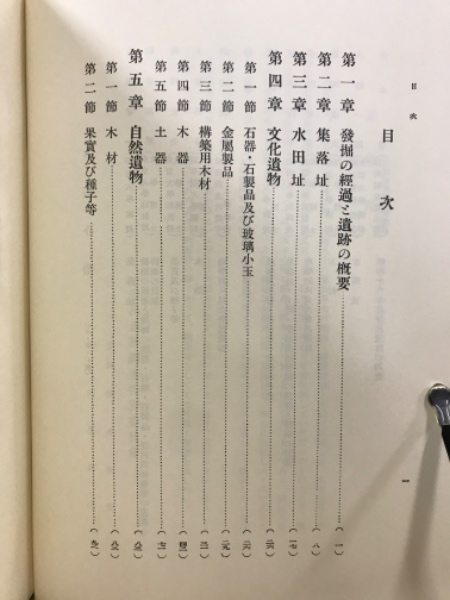 目次
目次
第一章 發掘の經過と遺跡の概要……(一)
第二章 集落址……(八)
第三章 水田址……(一七)
第四章 文化遺物……(二六)
第一節 石器・石製品及び玻璃小玉……(二六)
第二節 金屬製品……(二九)
第三節 構築用木材……(三一)
第四節 木器
第五節 土器
第五章 自然遺物
第一節 木材
第二節 果實及び種子等
一